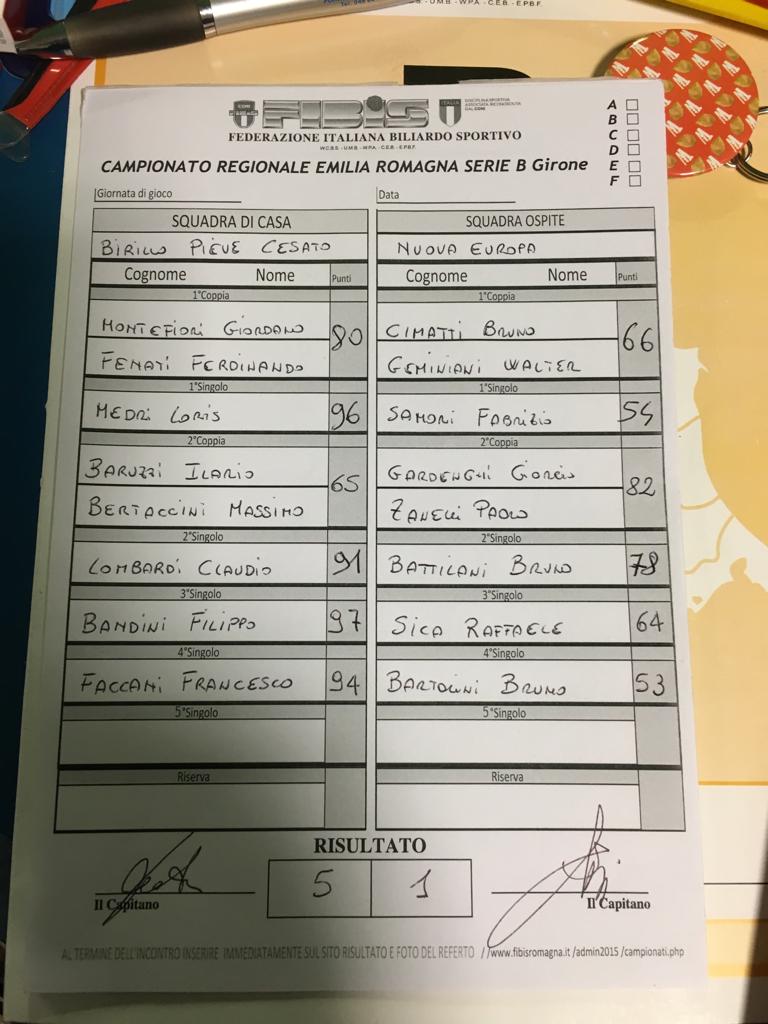 FIBiS
FEDERAZIONE ITALIANA BILIARDO SPORTIVO
W.C.B.S. - U.M.B. - W.P.A. - C.E.B. - E.P.B.F.
CAMPIONATO REGIONALE EMILIA ROMAGNA SERIE B Girone
A
B
C
D
E
F
Giornata di gioco
Data
SQUADRA DI CASA SQUADRA OSPITE
BIRILLO PIEVE CESATO NUOVA EUROPA
Cognome Nome Punti Cognome Nome Punti
1°Coppia 1°Coppia
MONTEFIORI GIORDANO 80 CIMATTI BRUNO 66
FENATI FERDINANDO GEMINIANI WALTER
1°Singolo 1°Singolo
MEDRI LORIS 96 SAMORI FABRIZIO
2°Coppia 2°Coppia
BARUZZI ILARIO 65 GARDENGHI GIORGIO 82
BERTACCINI MASSIMO ZANELLI PAOLO
2°Singolo 2°Singolo
LOMBARDI CLAUDIO 91 BATTILANI BRUNO 78
3°Singolo 3°Singolo
BANDINI FILIPPO 97 SICA RAFFAELE 64
4°Singolo 4°Singolo
FACCANI FRANCESCO 94 BARTOLINI BRUNO 53
5°Singolo 5°Singolo
Riserva Riserva
RISULTATO
5 1
Il Capitano Il Capitano
AL TERMINE DELL'INCONTRO INSERIRE IMMEDIATAMENTE SUL SITO RISULTATO E FOTO DEL REFERTO //www.fibisromagna.it /admin2015 /campionati.php